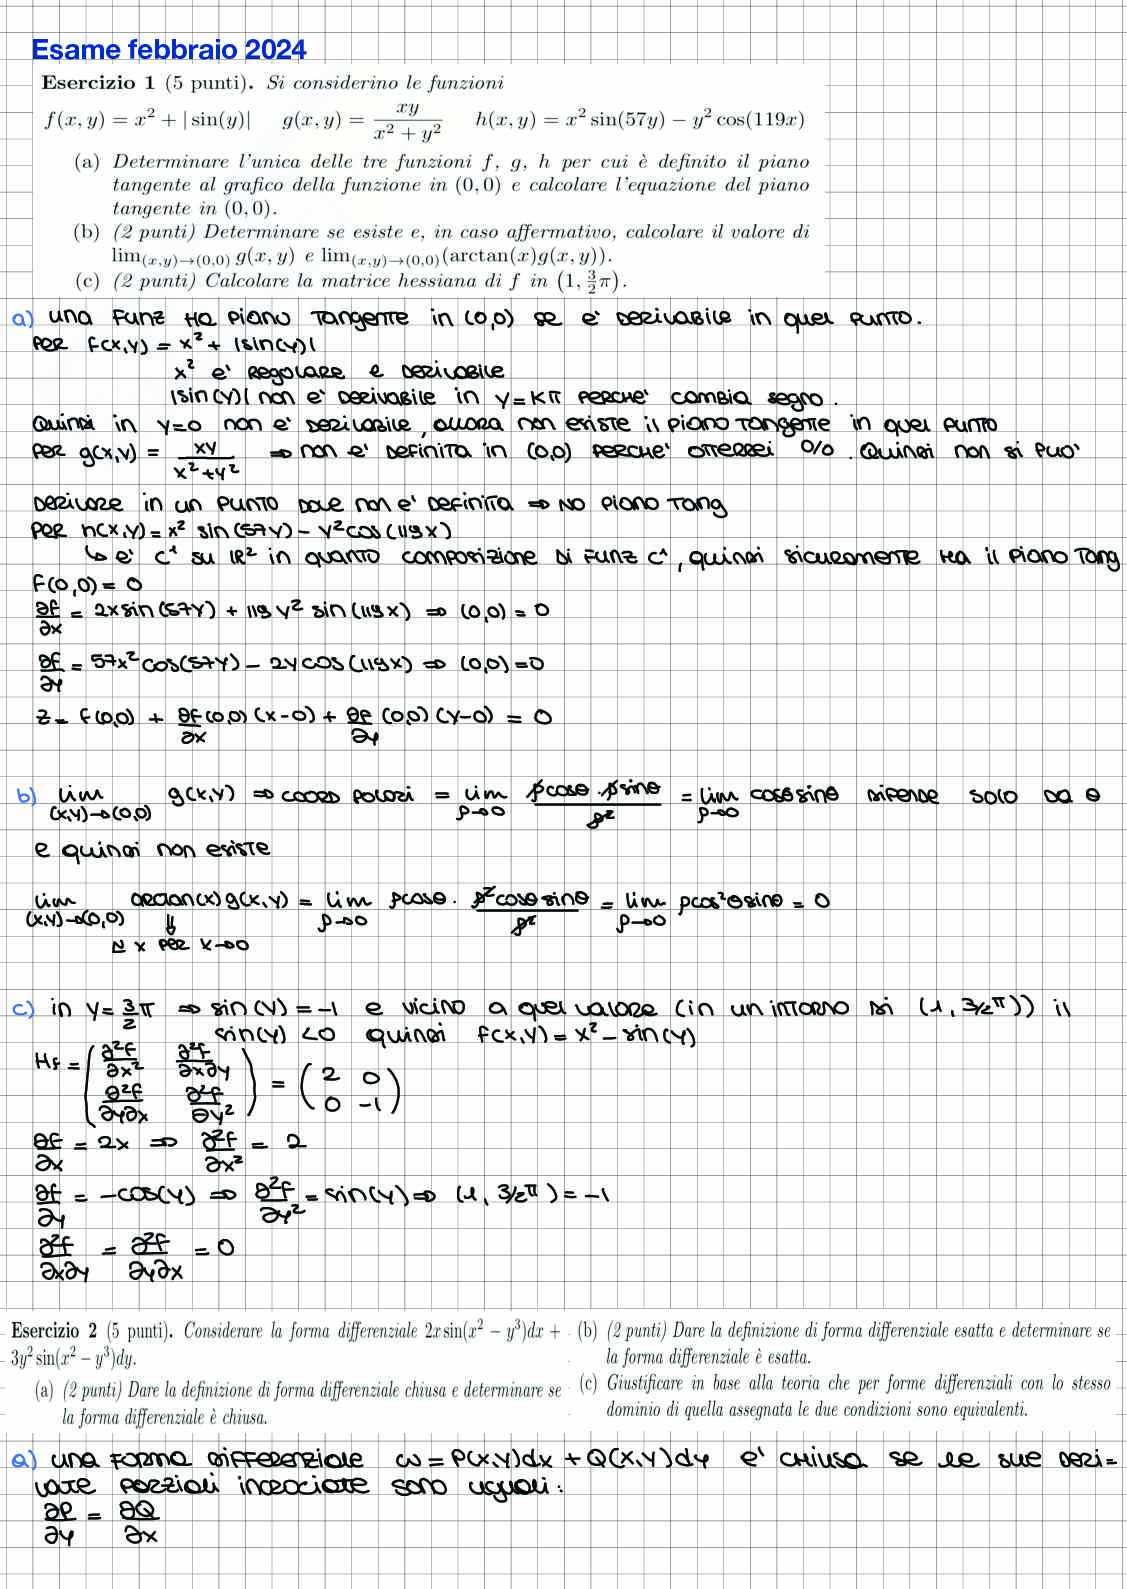 Esame febbraio 2024
Esercizio 1 (5 punti). Si considerino le funzioni
f(x, y) = x² + | sin(y)|    g(x, y) = xy / (x² + y²)    h(x, y) = x² sin(57y) − y² cos(119x)
(a) Determinare l'unica delle tre funzioni f, g, h per cui è definito il piano
tangente al grafico della funzione in (0, 0) e calcolare l'equazione del piano
tangente in (0, 0).
(b) (2 punti) Determinare se esiste e, in caso affermativo, calcolare il valore di
lim(x,y)→(0,0) g(x, y) e lim(x,y)→(0,0)(arctan(x)g(x, y)).
(c) (2 punti) Calcolare la matrice hessiana di f in (1, 3/2 π).
a) una funz ha piano tangente in (0,0) se e' derivabile in quel punto.
per f(x,y) = x² + |sin(y)|
x² e' regolare e derivabile
|sin(y)| non e' derivabile in y=kπ perche' cambia segno.
Quindi in y=0 non e' derivabile, allora non esiste il piano tangente in quel punto
per g(x,y) = xy / (x²+y²) ⇒ non e' definita in (0,0) perche' otterrei 0/0. Quindi non si puo'
derivare in un punto dove non e' definita ⇒ no piano tang
per h(x,y) = x² sin(57y) − y² cos(119x)
↳ e' C¹ su ℝ² in quanto composizione di funz C¹, quindi sicuramente ha il piano tang
f(0,0) = 0
∂f/∂x = 2x sin(57y) + 119 y² sin(119x) ⇒ (0,0) = 0
∂f/∂y = 57x² cos(57y) − 2y cos(119x) ⇒ (0,0) = 0
z = f(0,0) + ∂f/∂x (0,0) (x−0) + ∂f/∂y (0,0) (y−0) = 0
b) lim (x,y)→(0,0) g(x,y) ⇒ coord polari = lim ρ→0 ρcosθ·ρsinθ / ρ² = lim ρ→0 cosθsinθ dipende solo da θ
e quindi non esiste
lim (x,y)→(0,0) arctan(x)g(x,y) = lim ρ→0 ρcosθ · ρ²cosθsinθ / ρ² = lim ρ→0 ρcos²θsinθ = 0
⇓
~ x per x→0
c) in y = 3/2 π ⇒ sin(y) = −1 e vicino a quel valore (in un intorno di (1, 3/2π)) il
sin(y) <0 quindi f(x,y) = x² − sin(y)
Hf = ( ∂²f/∂x² ∂²f/∂x∂y ; ∂²f/∂y∂x ∂²f/∂y² ) = ( 2 0 ; 0 −1 )
∂f/∂x = 2x ⇒ ∂²f/∂x² = 2
∂f/∂y = −cos(y) ⇒ ∂²f/∂y² = sin(y) ⇒ (1, 3/2π) = −1
∂²f/∂x∂y = ∂²f/∂y∂x = 0
Esercizio 2 (5 punti). Considerare la forma differenziale 2x sin(x² − y³)dx +
3y² sin(x² − y³)dy.
(a) (2 punti) Dare la definizione di forma differenziale chiusa e determinare se
la forma differenziale è chiusa.
(b) (2 punti) Dare la definizione di forma differenziale esatta e determinare se
la forma differenziale è esatta.
(c) Giustificare in base alla teoria che per forme differenziali con lo stesso
dominio di quella assegnata le due condizioni sono equivalenti.
a) una forma differenziale ω = P(x,y)dx + Q(x,y)dy e' chiusa se le sue deri=
vate parziali incrociate sono uguali:
∂P/∂y = ∂Q/∂x